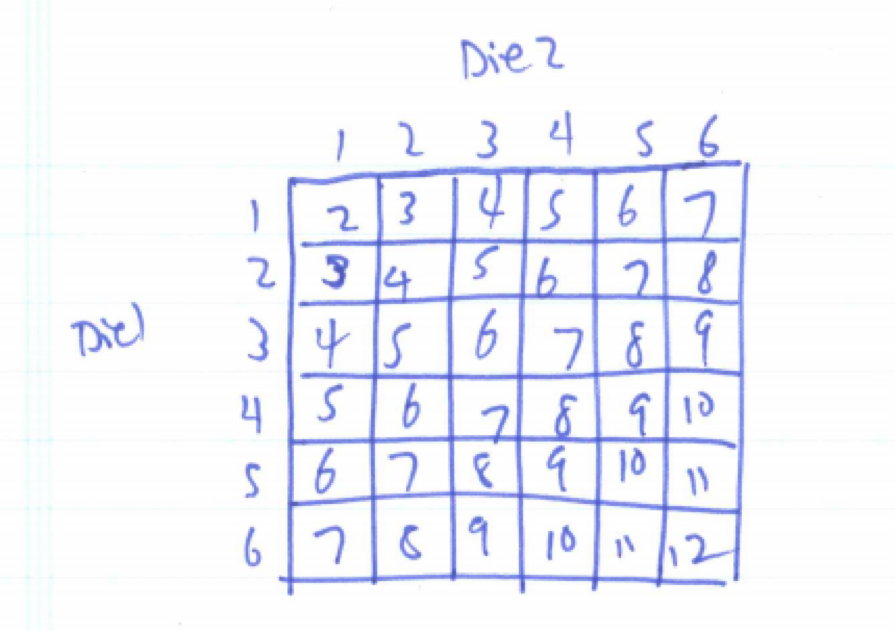 Die 2
1 2 3 4 5 6
1 2 3 4 5 6 7
2 3 4 5 6 7 8
Die 1 3 4 5 6 7 8 9
4 5 6 7 8 9 10
5 6 7 8 9 10 11
6 7 8 9 10 11 12